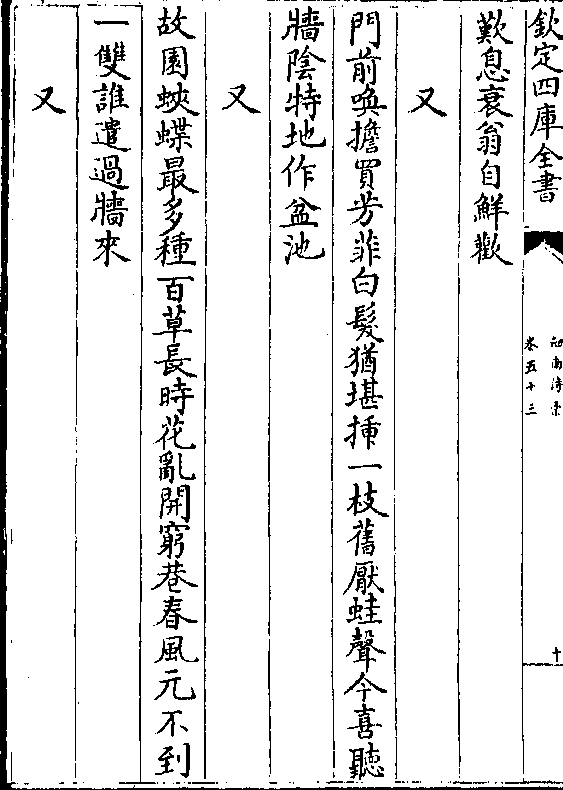 欽定四庫全書
劍南詩稾
卷五十三
十
歎息衰翁自鮮歡
又
門前喚擔買芳菲白髮猶堪揷一枝舊厭蛙聲今喜聽
牆陰特地作盆池
又
故園蛺蝶最多種百草長時花亂開窮巷春風元不到
一雙誰遣過牆來
又